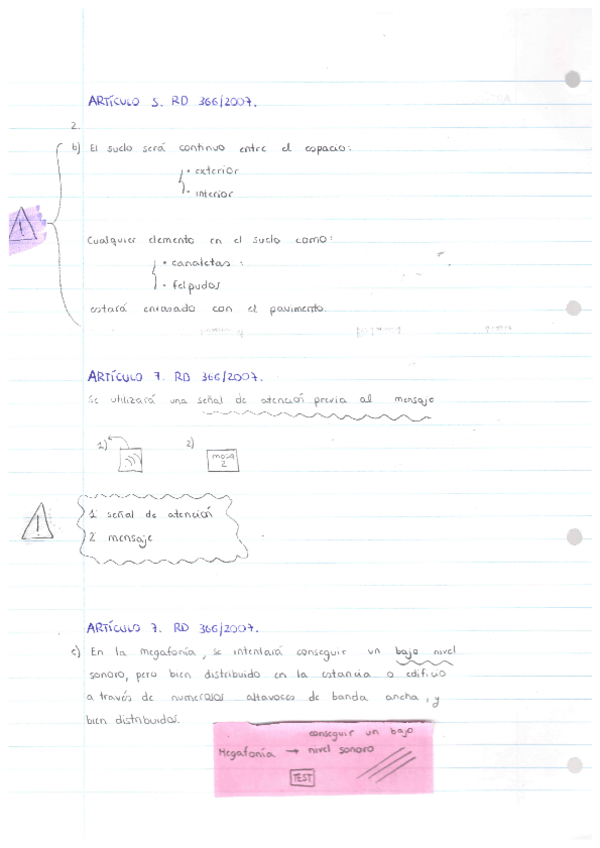 ARTÍCULO 5. RD 366/2007.
2.
b) El suelo será continuo entre el espacio:
• exterior
• interior
Cualquier elemento en el suelo como:
• canaletas :
• felpudos
estará enrasado con el pavimento.
ARTÍCULO 7. RD 366/2007.
Se utilizará una señal de atención previa al mensaje
1) 2)
mesa
2
1 señal de atención
2 mensaje
ARTÍCULO 7. RD 366/2007.
c) En la megafonía, se intentará conseguir un bajo nivel
sonoro, pero bien distribuido en la estancia o edificio
a través de numerosos altavoces de banda ancha, y
bien distribuidos.
conseguir un bajo
Megafonía → nivel sonoro
TEST